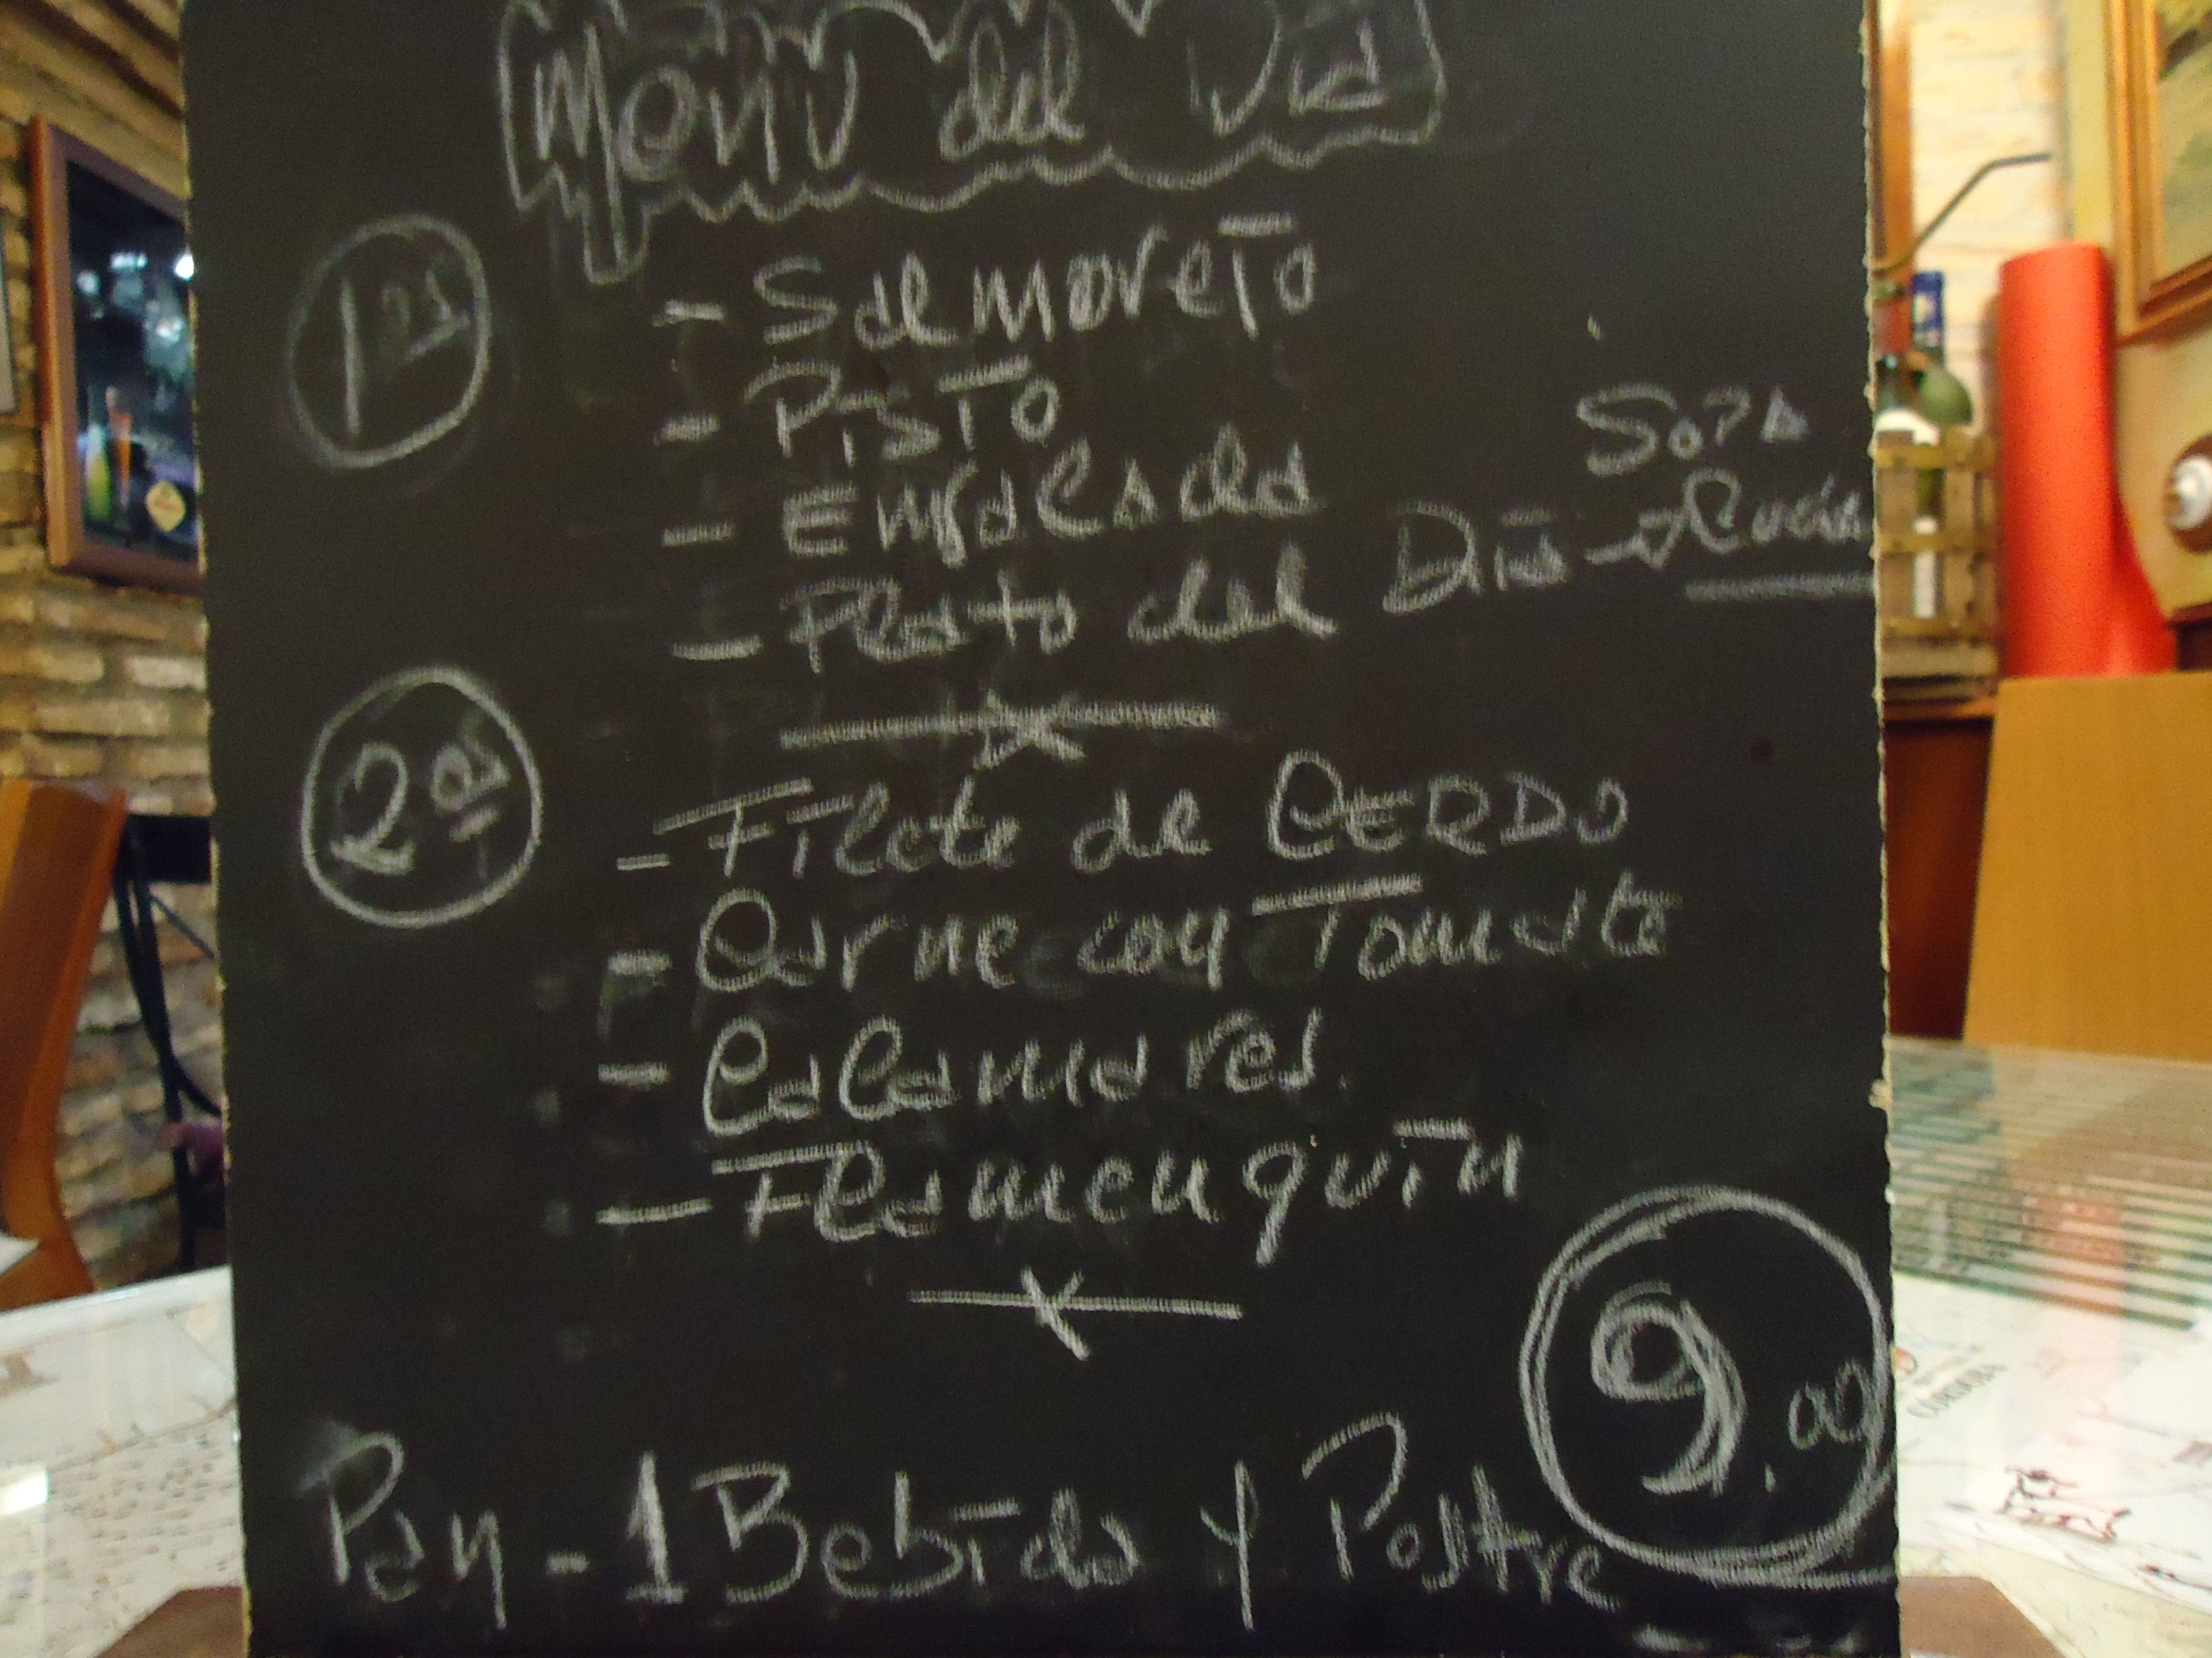 Menu del Dia
1as
- Salmoreto
- Pisto
- Ensalada
- Plato del Dia → Sopa
2as
- Filete de CERDO
- Carne con Tomate
- Calamares
- Flamenquin
9.00
Pan - 1 Bebida y Postre
CORDOBA